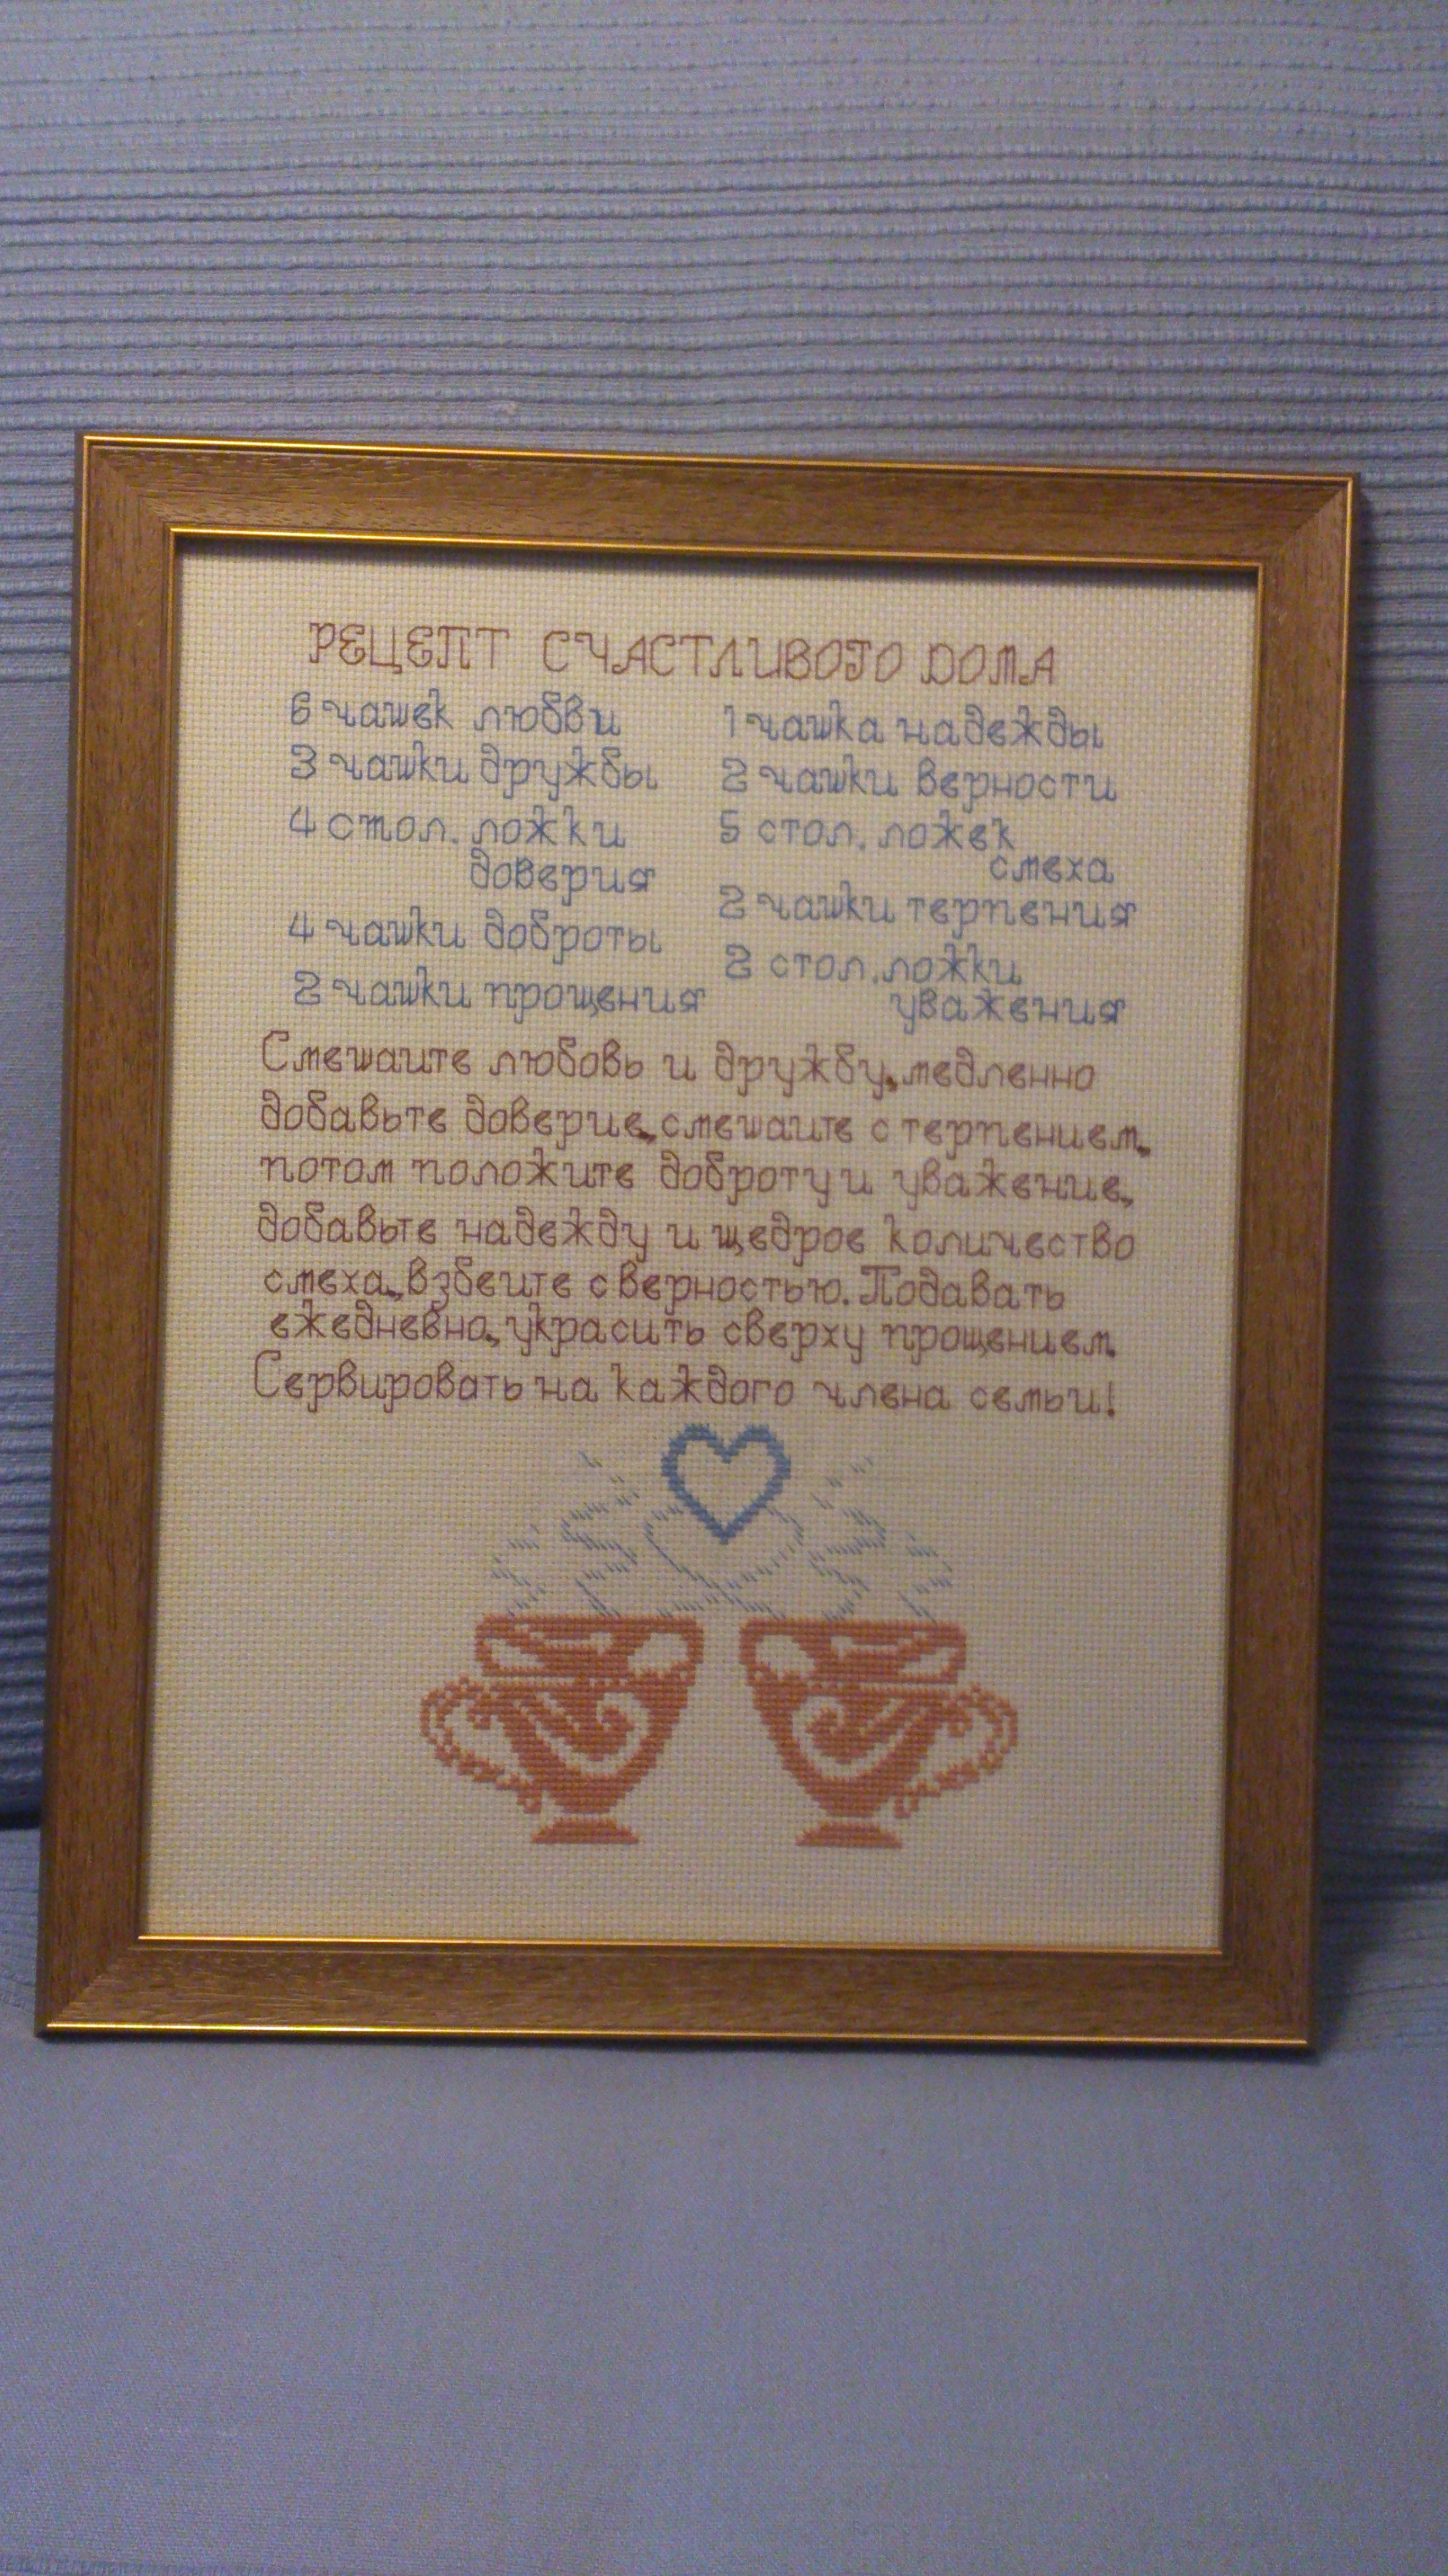 РЕЦЕПТ СЧАСТЛИВОГО ДОМА
6 чашек любви
3 чашки дружбы
4 стол. ложки
доверия
4 чашки доброты
2 чашки прощения
1 чашка надежды
2 чашки верности
5 стол. ложек
смеха
2 чашки терпения
2 стол. ложки
уважения
Смешаите любовь и дружбу, медленно
добавьте доверие, смешаите с терпением,
потом положите доброту и уважение,
добавьте надежду и щедрое количество
смеха, взбеите с верностью. Подавать
ежедневно, украсить сверху прощением.
Сервировать на каждого члена семьи!